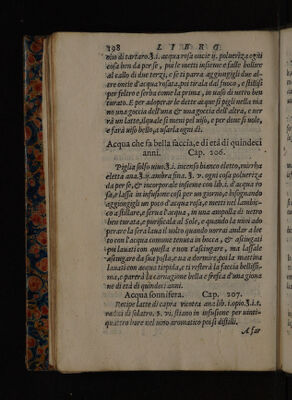 198 LIBRO
nio di tartaro.ʒ.i. acqua rosa oncie ij. polueriza ogni
cosa ben da per se, poi le metti insieme e falle bollire
al callo di due terzi, e se ti parra aggiungigli due al-
tre oncie d'acqua rosata, poi tirala dal fuoco, e stillisi
per feltro e serba come la prima, in vaso di vetro ben
turato. E per adoperar le dette acque si pigli nella ma
no vna goccia dell'vna & vna goccia dell'altra, e tor
rà vn latte, il quale si meni pel viso, e per dune si vole,
e farà viso bello, a vsarla ogni dì.
Acqua che fa bella faccia, e di età di quindeci
anni. Cap. 206.
Piglia solfo viuo.ʒ.i. incenso bianco eletto, mirrha
eletta ana.ʒ.ij. ambra fina. ʒ. v. ogni cosa polueriza
da per se, & incorporale insieme con lib. i. d'acqua ro
sa, e lassa in infusione cosi per vn giorno, e bisognando
aggiongigli vn poco d'acqua rosa, e metti nel lambic-
co a stillare, e serua l'acqua, in vna ampolla di vetro
ben turata, e purificala al Sole, e quando la vuoi ado
perare la sera laua il volto quando vorrai andar a let
to con l'acqua commune tenuta in bocca, & asciugati
e poi lauati con questa e non t'asciugare, ma lassale
asciugare da sua posta, e va a dormire, poi la mattina
lauati con acqua tiepida, e ti resterà la faccia bellissi-
ma, e parerà la carnagione bella e fresca d'una gioua
ne di età di quindeci anni.
Acqua sonnifera. Cap. 207.
Recipe latte di capra vintera ana lib. i. opio.ʒ.i.ʀ.
radici di solatro. ʒ. vi. stiano in infusione per vinti-
quattro hore nel vino aromatico poi si distilli.
A far